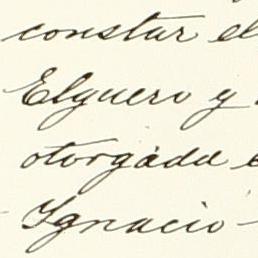 constar el
Elguero y
otorgada
Ignacio